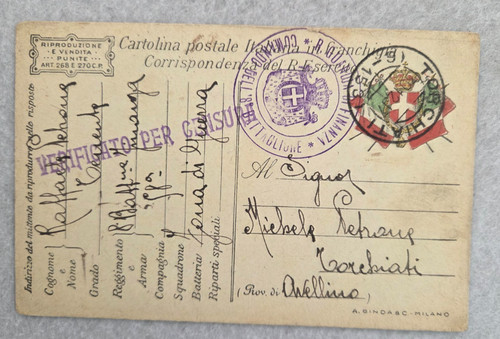 RIPRODUZIONE
E VENDITA
PUNITE
ART. 268 E 270 C.P.
Cartolina postale Italiana in franchigia
Corrispondenza del R. Esercito
R. GUARDIA DI FINANZA
COMANDO DELL' 8 BATTAGLIONE
TORCHIATI
VERIFICATO PER CENSURA
Indirizzo del mittente da riprodursi nelle risposte
Cognome e Nome Raffaele Petrone
Grado
Reggimento
Arma
Compagnia
Squadrone
Batteria Zona di Guerra
Riparti speciali
Al Signor
Michele Petrone
Torchiati
(Prov. di Avellino
A. GINDA & C. - MILANO